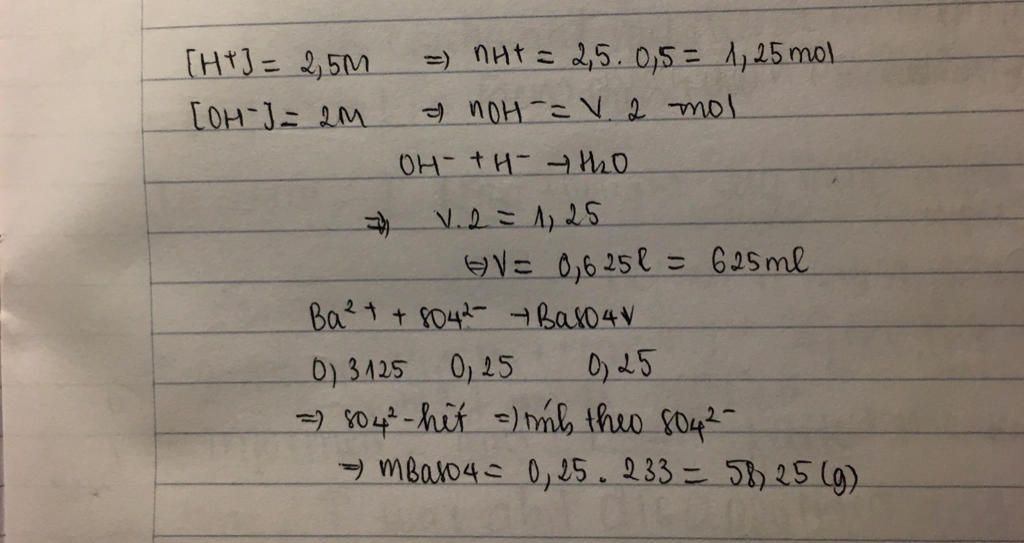 [H+] = 2,5M ⇒ nH+ = 2,5 . 0,5 = 1,25mol
[OH-] = 2M ⇒ nOH- = V. 2 mol
OH- + H- → H2O
⇒ V.2 = 1,25
⇔ V = 0,625l = 625ml
Ba2+ + SO42- → BaSO4↓
0,3125 0,25 0,25
⇒ SO42- hết ⇒ tính theo SO42-
⇒ mBaSO4 = 0,25 . 233 = 58,25 (g)